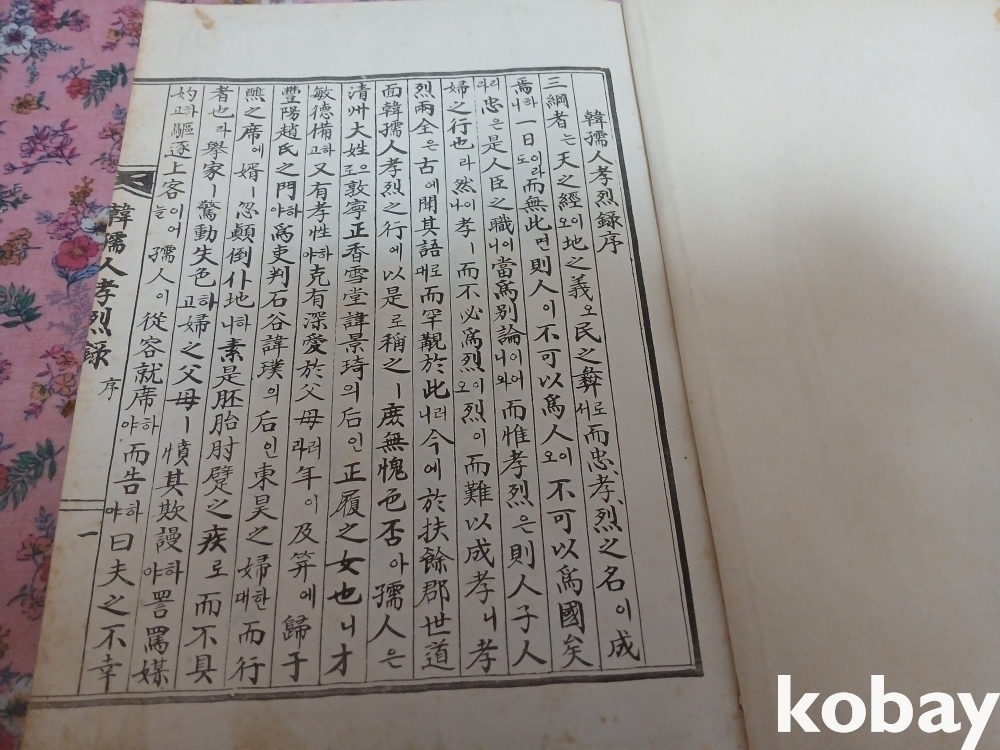 韓孺人孝烈錄序
三綱者는天之經이오地之義오民之彛로서而忠、孝、烈之名이成
焉하니一日이라도而無此면則人이不可以爲人이오不可以爲國矣
리라忠은是人臣之職이니當爲別論이어니와而惟孝烈은則人子人
婦之行也라然이나孝ㅣ而不必爲烈이오烈이而難以成孝니孝
烈兩全은古에聞其語대로而罕覯於此러니今에於扶餘郡世道
面韓孺人孝烈之行에以是로稱之ㅣ庶無愧色否아孺人은
淸州大姓으로敦寧正香雪堂諱景琦의后인正履之女也ㅣ니才
敏德備하고又有孝性하야克有深愛於父母러라年이及笄에歸于
豐陽趙氏之門하야爲吏判石谷諱璞의后인東昊之婦한대而行
醮之席에婿ㅣ忽顚倒仆地하나素是胚胎肘躄之疾로而不具
者也라擧家ㅣ驚動失色하고婦之父母ㅣ憤其欺謾하야詈罵媒
妁하고驅逐上客이어늘孺人이從容就席하야而告하야曰夫之不幸
韓孺人孝烈錄 序 一
kobay